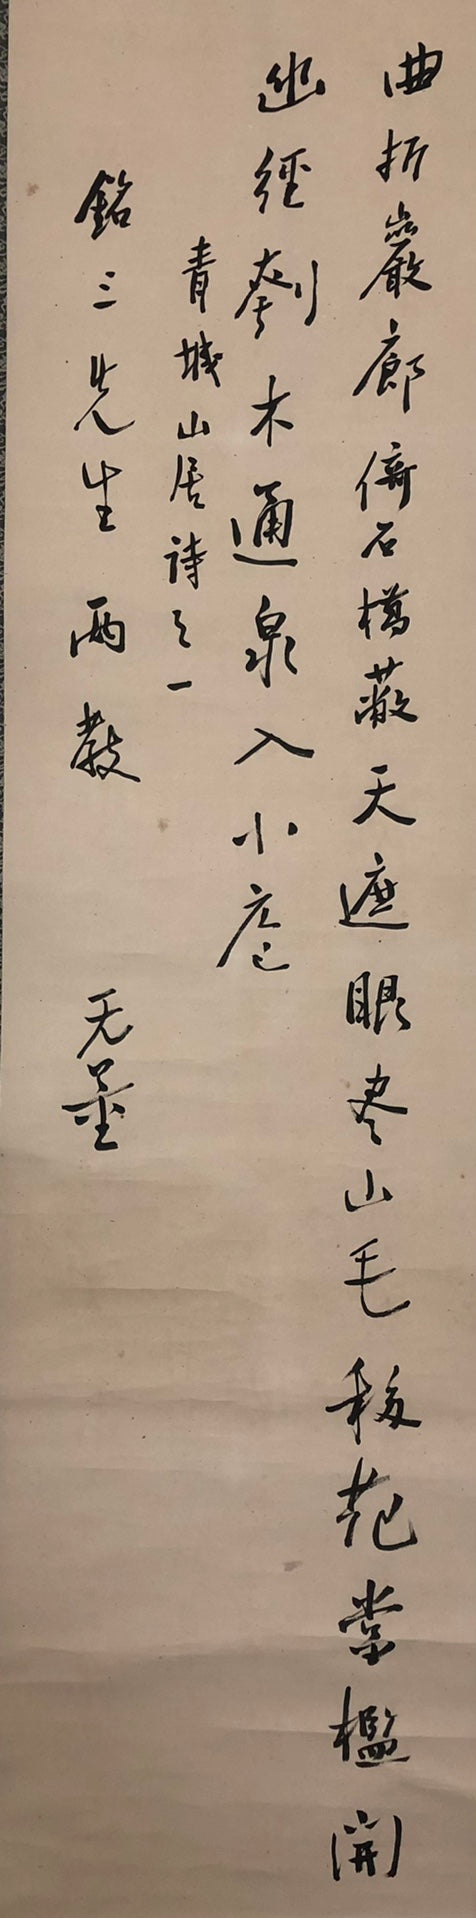 曲折巖廊倚石槗蔽天遮眼尽山毛移花當檻開
幽徑刳木通泉入小庖
青城山居詩之一
銘三先生兩教
无量